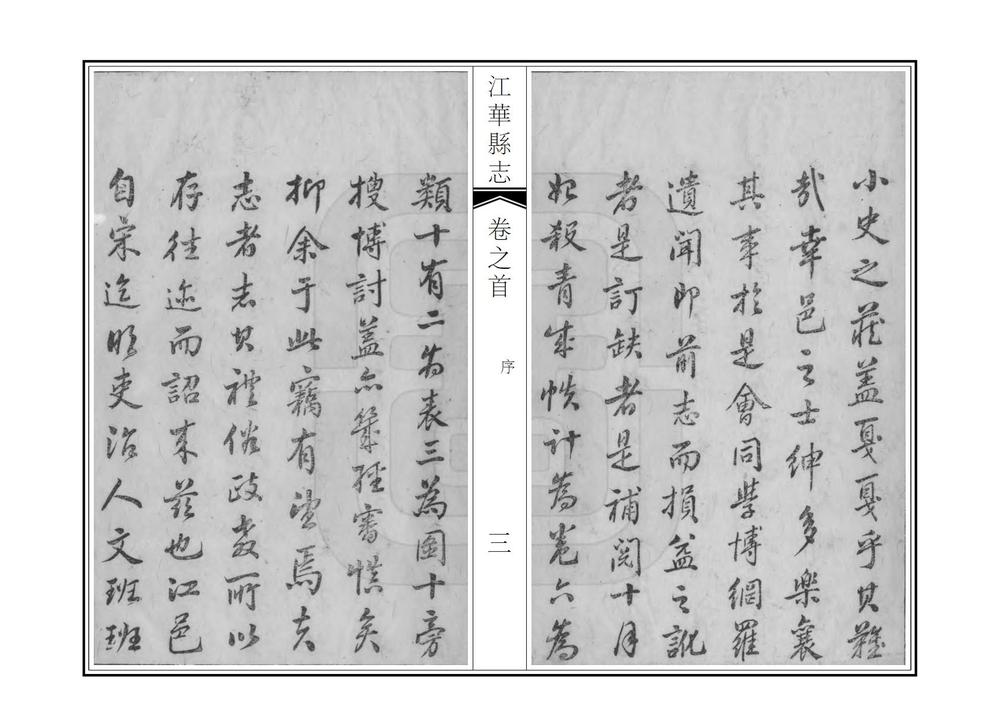 小史之蕆盖戛戛乎其難
哉幸邑之士紳多樂襄
其事於是會同學博網羅
遺聞即前志而損益之訛
者是訂缺者是補閱十月
始殺青成帙計為卷六為
江華縣志
卷之首
序
三
類十有二為表三為圖十旁
搜博討蓋亦幾經審慎矣
抑余于此竊有望焉夫
志者志其禮俗政教所以
存往迹而詔來茲也江邑
自宋迄明吏治人文班班